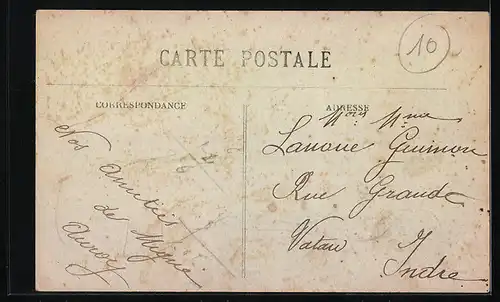 10
CARTE POSTALE
CORRESPONDANCE
Nos Amitiés
de Mignie
Auroy
ADRESSE
Mme
Lanoue Guimon
Rue Grande
Vatan Indre